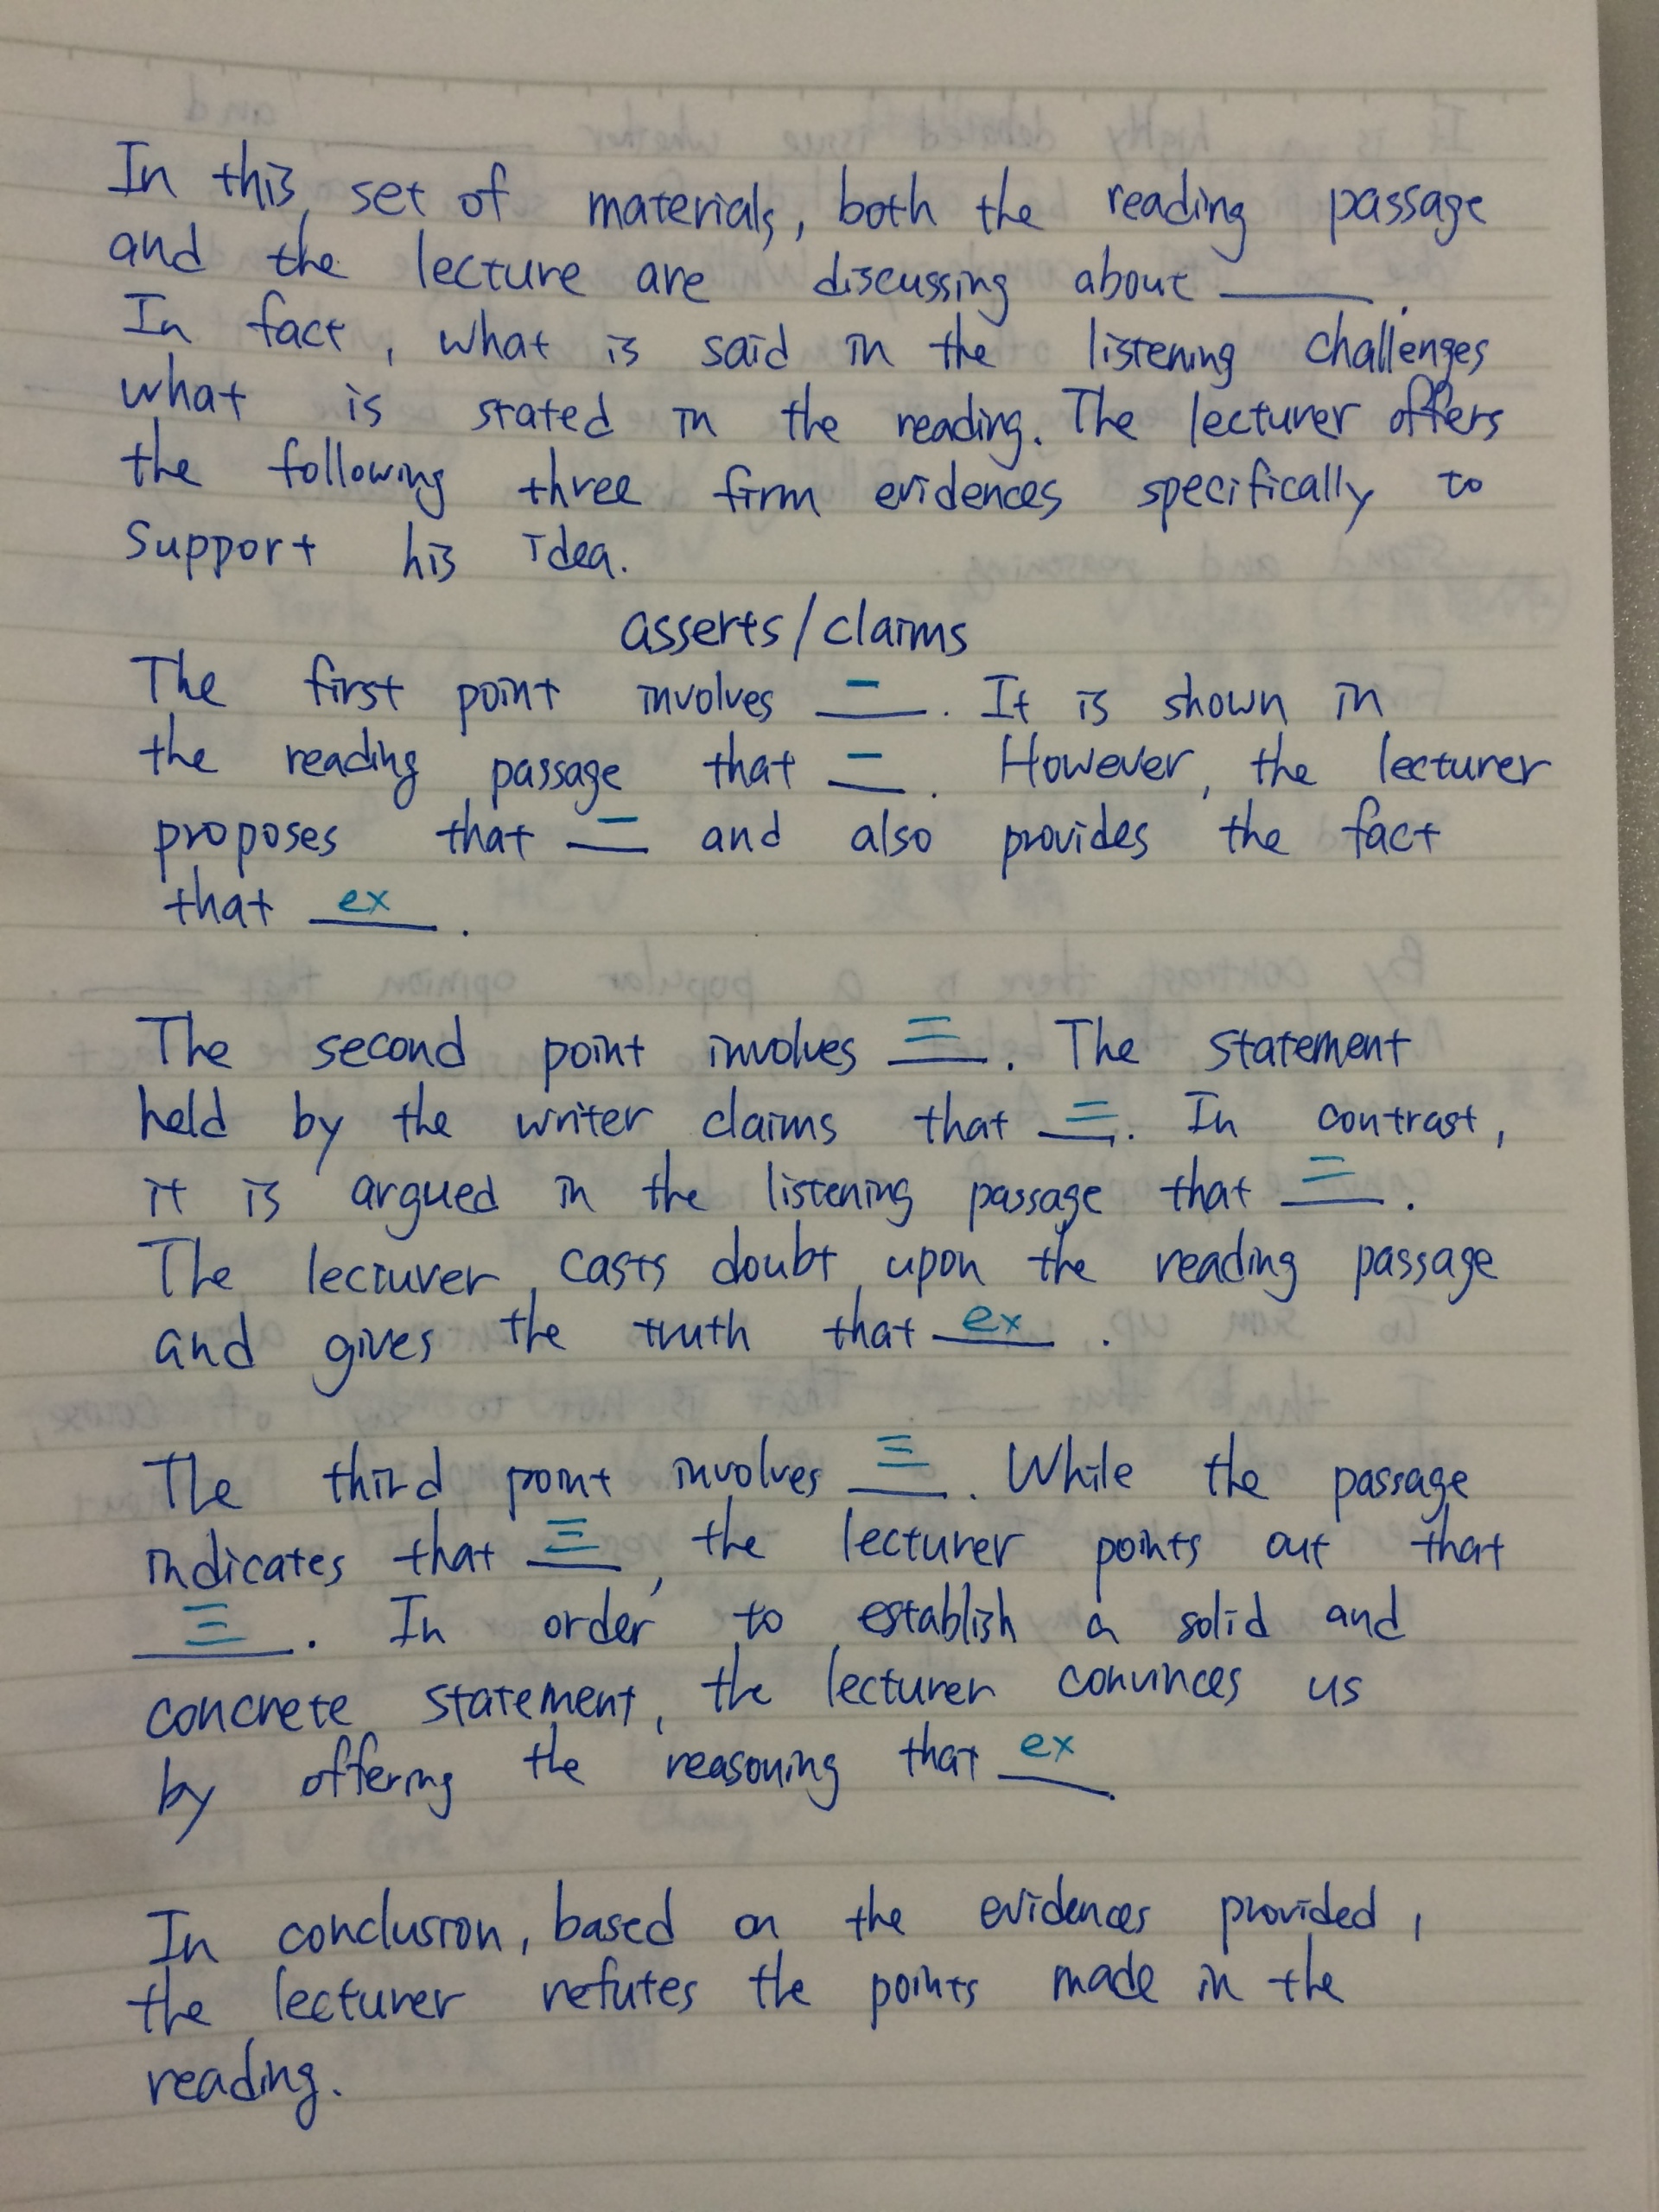 In this set of materials, both the reading passage
and the lecture are discussing about ____.
In fact, what is said in the listening challenges
what is stated in the reading. The lecturer offers
the following three firm evidences specifically to
support his idea.
asserts/claims
The first point involves 一. It is shown in
the reading passage that 一. However, the lecturer
proposes that 一 and also provides the fact
that ex.
The second point involves 二. The statement
held by the writer claims that 二. In contrast,
it is argued in the listening passage that 二.
The lecturer casts doubt upon the reading passage
and gives the truth that ex.
The third point involves 三. While the passage
indicates that 三, the lecturer points out that
三. In order to establish a solid and
concrete statement, the lecturer convinces us
by offering the reasoning that ex.
In conclusion, based on the evidences provided,
the lecturer refutes the points made in the
reading.